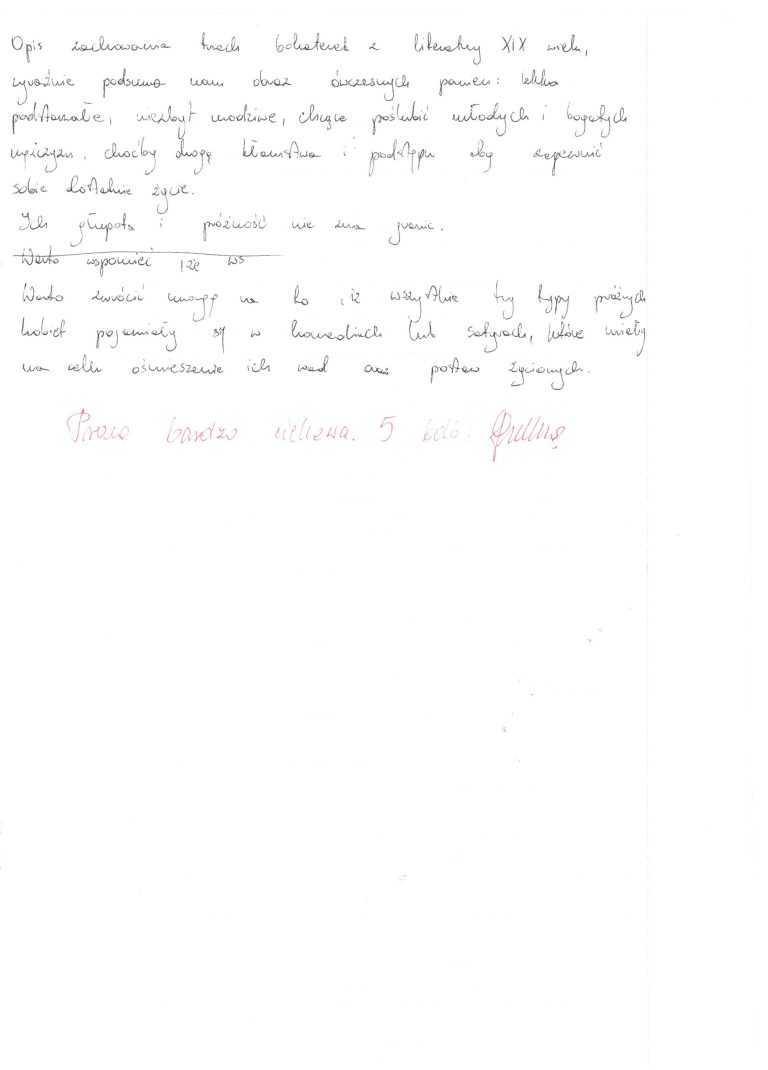 Opis zachowania trzech bohaterek z literatury XIX wieku,
wyraźnie podsuma nam obraz ówczesnych panien: lekko
podstarzałe, niezbyt urodziwe, chcące poślubić młodych i bogatych
mężczyzn, choćby drogą kłamstwa i podstępu aby zapewnić
sobie dostatnie życie.
Ich głupota i próżność nie zna granic.
Warto wspomnieć , że ws
Warto zwrócić uwagę na to , iż wszystkie trzy typy próżnych
kobiet pojawiały się w komediach lub satyrach, które miały
na celu ośmieszenie ich wad oraz postaw życiowych.
Praca bardzo ciekawa. 5 bdb